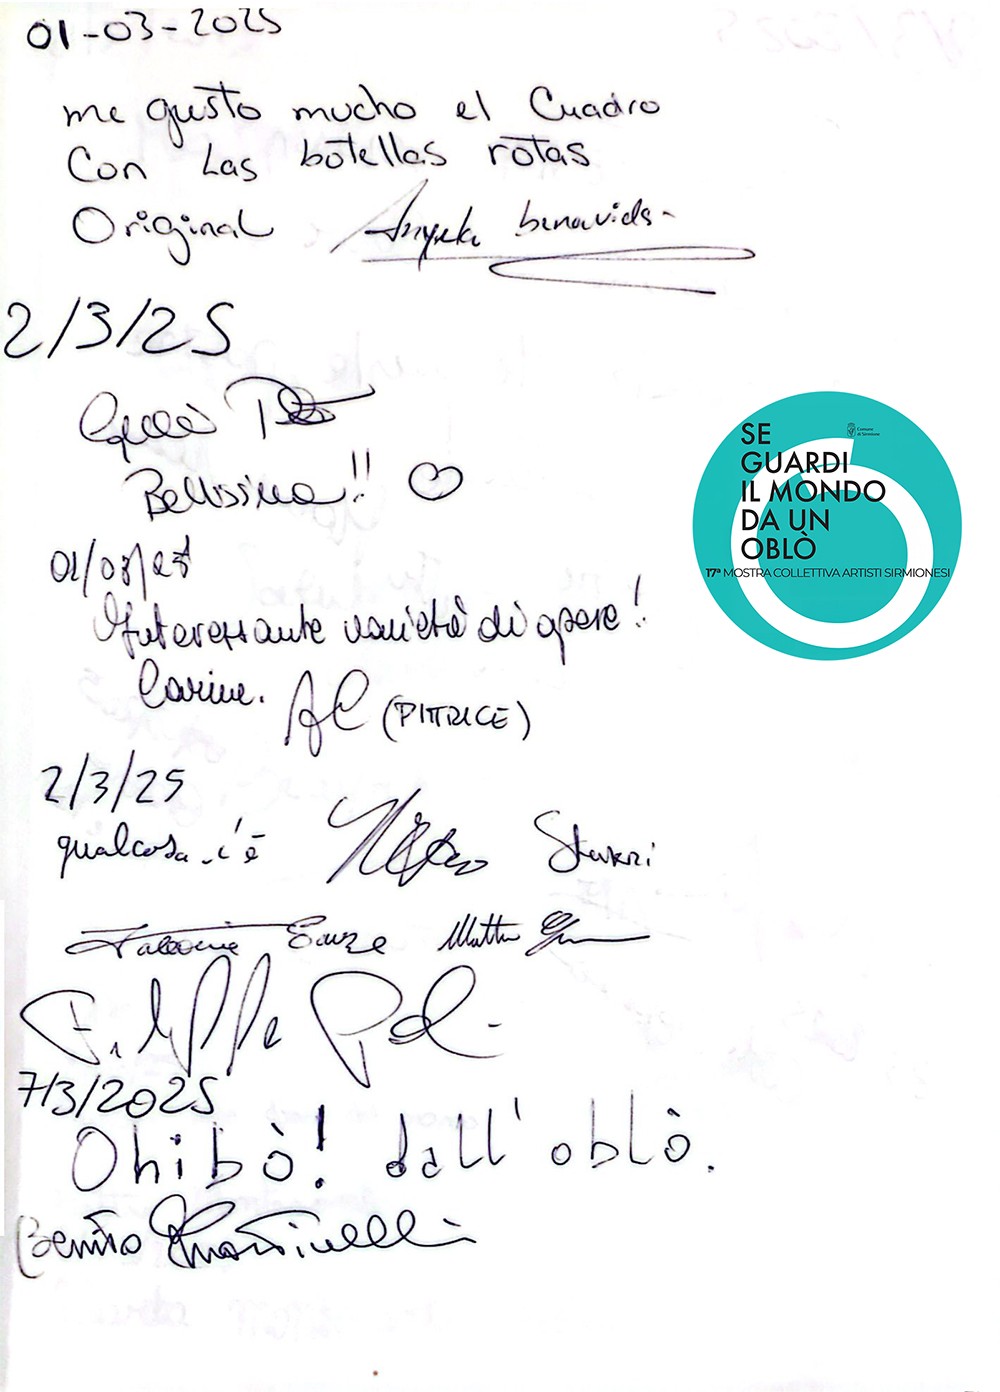 01-03-2025
me gusto mucho el Cuadro
Con Las botellas rotas
Original Angela benavides
2/3/25
Bellissima!! ♡
SE
GUARDI
IL MONDO
DA UN
OBLÒ
Comune
di Sirmione
17ª MOSTRA COLLETTIVA ARTISTI SIRMIONESI
01/03/25
Interessante varietà di opere!
Carine. AC (PITTRICE)
2/3/25
qualcosa c'è
Matteo
Filippo
7/3/2025
Ohibò! dall' oblò.
Benito Martinelli